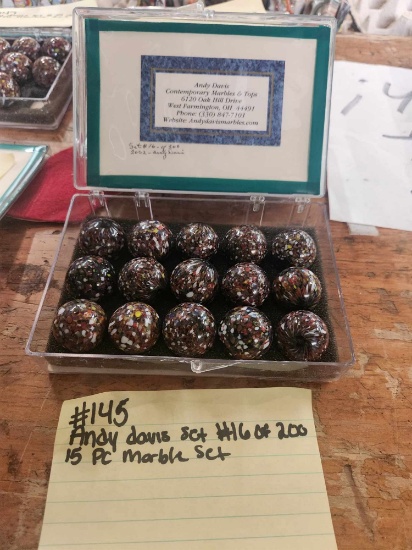 Andy Davis
Contemporary Marbles & Tops
6120 Oak Hill Drive
West Farmington, OH 44491
Phone: (330) 847-7101
Website: Andydavismarbles.com
#145
Andy davis set #16 of 200
15 PC marble set